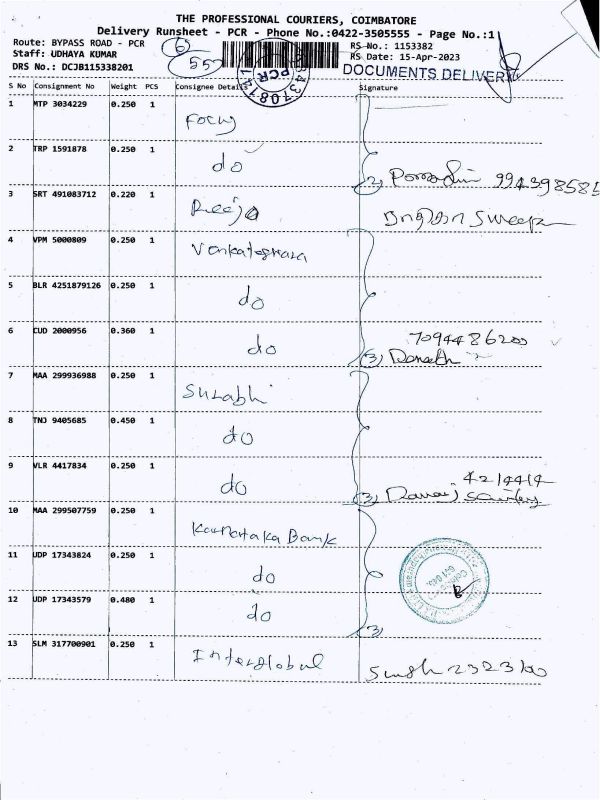 THE PROFESSIONAL COURIERS, COIMBATORE
Delivery Runsheet - PCR - Phone No.:0422-3505555 - Page No.:1
Route: BYPASS ROAD - PCR
Staff: UDHAYA KUMAR
DRS No.: DCJB115338201
6
557
RS No.: 1153382
RS Date: 15-Apr-2023
PCR
DOCUMENTS DELIVERY
S No Consignment No Weight PCS Consignee Details Signature
1 MTP 3034229 0.250 1 Focus
2 TRP 1591878 0.250 1 do
(2) 994398585
3 SRT 491083712 0.220 1
4 VPM 5000809 0.250 1 Venkateswara
5 BLR 4251879126 0.250 1 do
6 CUD 2000956 0.360 1 do
7094486200
(3)
7 MAA 299936988 0.250 1 Surabhi
8 TNJ 9405685 0.450 1 do
9 VLR 4417834 0.250 1 do
4214414
(3)
10 MAA 299507759 0.250 1 Karnataka Bank
11 UDP 17343824 0.250 1 do
12 UDP 17343579 0.480 1 do
(3)
13 SLM 317700901 0.250 1 Interglobal